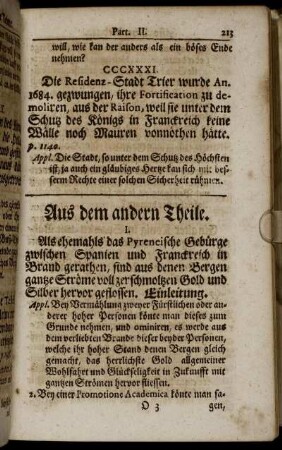 Part. II. 213
will, wie kan der anders als ein böses Ende
nehmen?
CCCXXXI.
Die Residenz-Stadt Trier wurde An.
1684. gezwungen, ihre Fortification zu de-
moliren, aus der Raison, weil sie unter dem
Schutz des Königs in Franckreich keine
Wälle noch Mauren vonnöthen hätte.
p. 1140.
Appl. Die Stadt, so unter dem Schutz des Höchsten
ist, ja auch ein gläubiges Hertze kan sich mit bes-
serm Rechte einer solchen Sicherheit rühmen.
Aus dem andern Theile.
I.
Als ehemahls das Pyreneische Gebürge
zwischen Spanien und Franckreich in
Brand gerathen, sind aus denen Bergen
gantze Ströme voll zerschmoltzen Gold und
Silber hervor geflossen. Einleitung.
Appl. Bey Vermählung zweyer Fürstlichen oder an-
derer hoher Personen könte man dieses zum
Grunde nehmen, und ominiren, es werde aus
dem verliebten Brande dieser beyder Personen,
welche ihr hoher Stand denen Bergen gleich
gemacht, das herrlichste Gold allgemeiner
Wohlfahrt und Glückseligkeit in Zukunfft mit
gantzen Strömen hervor fliessen.
2. Bey einer Promotione Academica könte man sa-
O 3 gen,